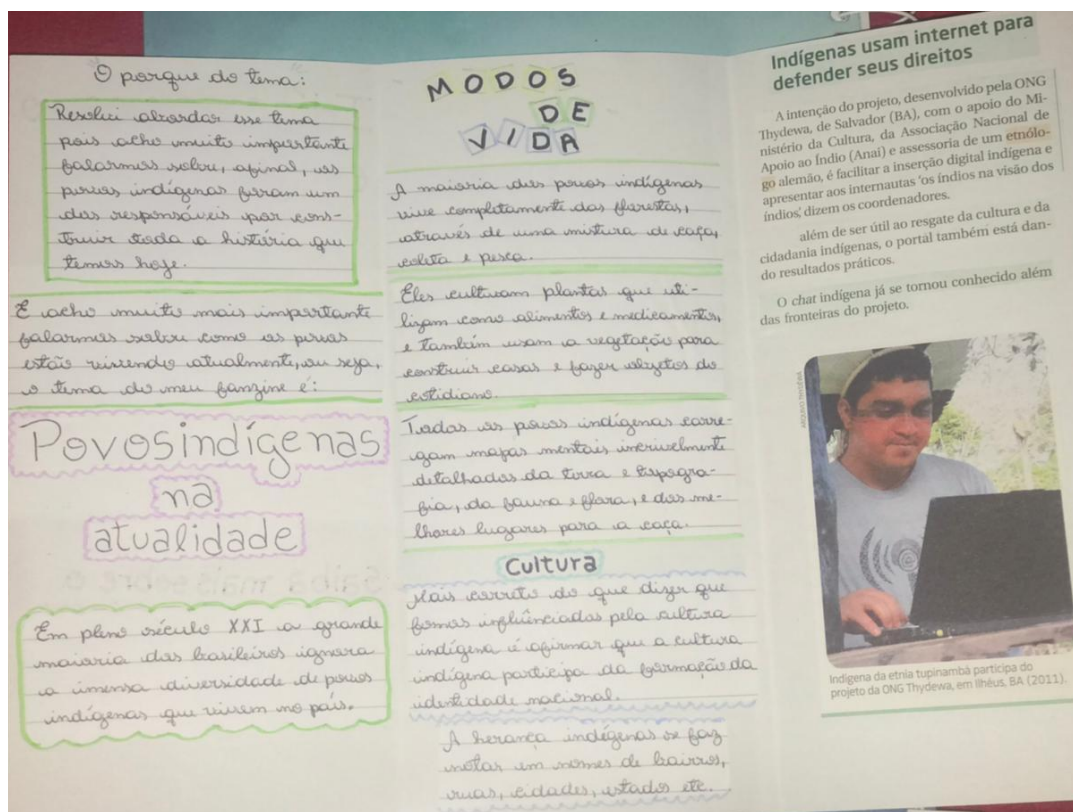 O porque do tema:
Resolvi abordar esse tema
pois acho muito importante
falarmos sobre, afinal, os
povos indígenas foram um
dos responsáveis por cons-
truir toda a história que
temos hoje.
E acho muito mais importante
falarmos sobre como os povos
estão vivendo atualmente, ou seja,
o tema do meu fanzine é:
Povos indígenas
na
atualidade
Em pleno século XXI a grande
maioria dos brasileiros ignora
a imensa diversidade de povos
indígenas que vivem no país.
MODOS
DE
VIDA
A maioria dos povos indígenas
vive completamente das florestas,
através de uma mistura de caça,
coleta e pesca.
Eles cultivam plantas que uti-
lizam como alimentos e medicamentos,
e também usam a vegetação para
construir casas e fazer objetos do
cotidiano.
Todos os povos indígenas carre-
gam mapas mentais incrivelmente
detalhados da terra e topogra-
fia, da fauna e flora, e dos me-
lhores lugares para a caça.
Cultura
Mais correto do que dizer que
fomos influênciados pela cultura
indígena é afirmar que a cultura
indígena participa da formação da
identidade nacional.
A herança indígenas se faz
notar em nomes de bairros,
ruas, cidades, estados etc.
Indígenas usam internet para
defender seus direitos
A intenção do projeto, desenvolvido pela ONG
Thydewa, de Salvador (BA), com o apoio do Mi-
nistério da Cultura, da Associação Nacional de
Apoio ao Índio (Anaí) e assessoria de um etnólo-
go alemão, é facilitar a inserção digital indígena e
apresentar aos internautas 'os índios na visão dos
índios', dizem os coordenadores.
além de ser útil ao resgate da cultura e da
cidadania indígenas, o portal também está dan-
do resultados práticos.
O chat indígena já se tornou conhecido além
das fronteiras do projeto.
Indígena da etnia tupinambá participa do
projeto da ONG Thydewa, em Ilhéus, BA (2011).